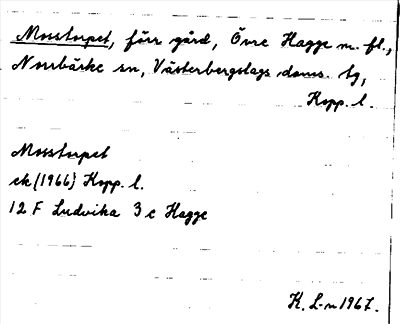 Mosstorpet, förr gård, Övre Hagge m. fl.,
Norrbärke sn, Västerbergslags doms. tg,
Kopp. l.
Mosstorpet
ek (1966) Kopp. l.
12 F Ludvika 3 c Hagge
K. L-n 1967.